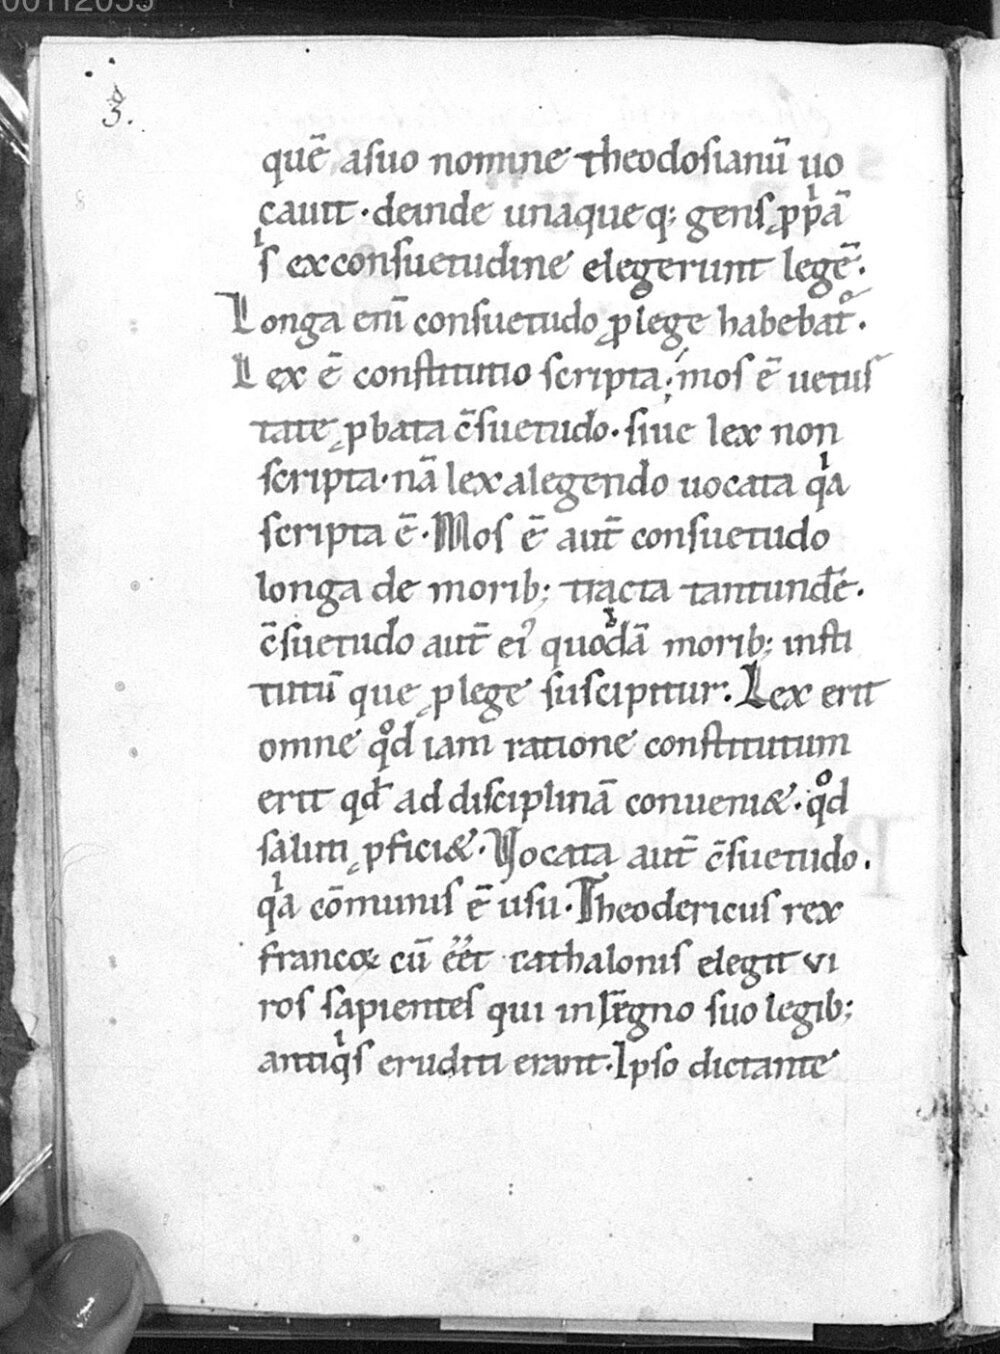 00112055
3.
quē asuo nomine theodosianū uo
cauit · deinde unaqueq; gens ꝓpͥā
sͥ exconsuetudine elegerunt legē.
Longa enī consuetudo ꝓ lege habebat᷒.
Lex ē constitutio scripta; mos ē uetus
tate ꝓbata c̄suetudo · siue lex non
scripta · nā lex alegendo uocata qͥa
scripta ē · Mos ē aut̄ consuetudo
longa de morib; tracta tantundē.
c̄suetudo aut̄ ē iꝰ quodͣā morib; insti
tutū que ꝓ lege suscipitur. Lex erit
omne qͦd iam ratione constitutum
erit qd̄ ad disciplinā conueni& · qͦd
saluti ꝓfici& · Vocata aut̄ c̄suetudo.
qͥa cōmunis ē usu · Theodericus rex
francoꝝ cū ēēt cathalonis elegit vi
ros sapientes qui in regno suo legib;
antiqͥs eruditi erant · Ipso dictante